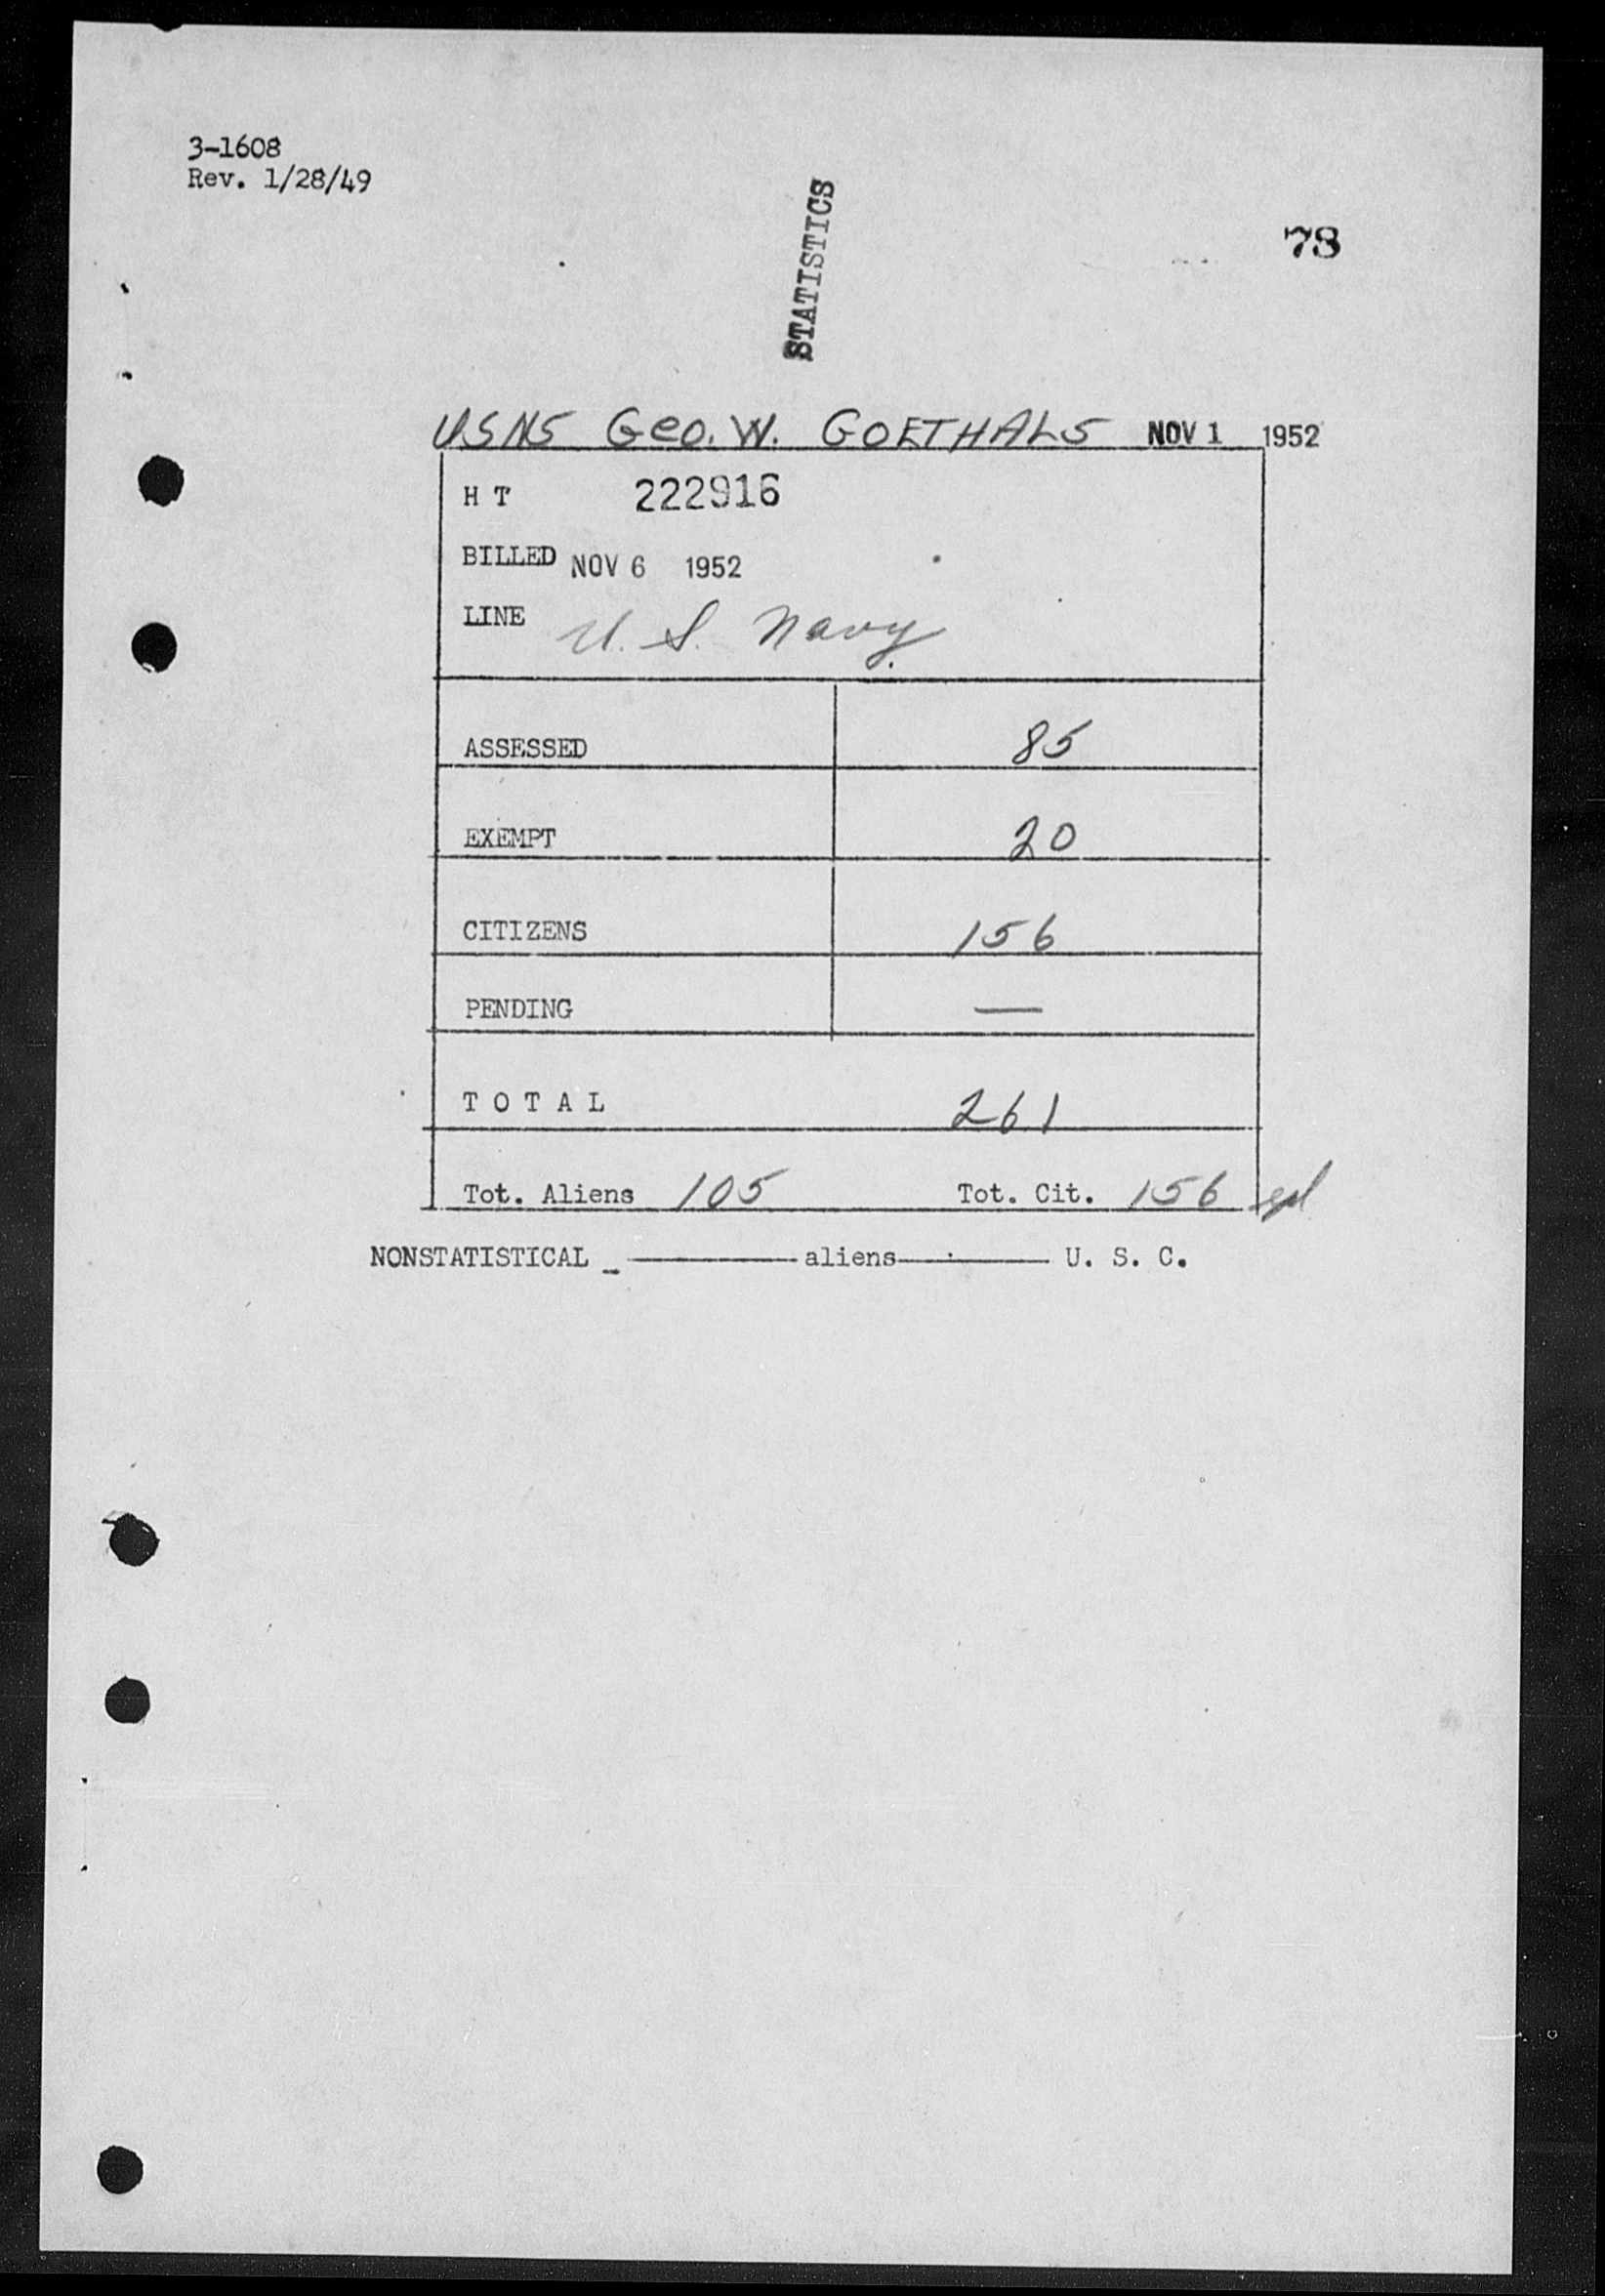 3-1608
Rev. 1/28/49
STATISTICS
78
USNS Geo. W. GOETHALS NOV 1 1952
H T 222916
BILLED NOV 6 1952
LINE U. S. Navy
ASSESSED 85
EXEMPT 20
CITIZENS 156
PENDING —
T O T A L 261
Tot. Aliens 105 Tot. Cit. 156
NONSTATISTICAL _ ——— aliens ——— U. S. C.